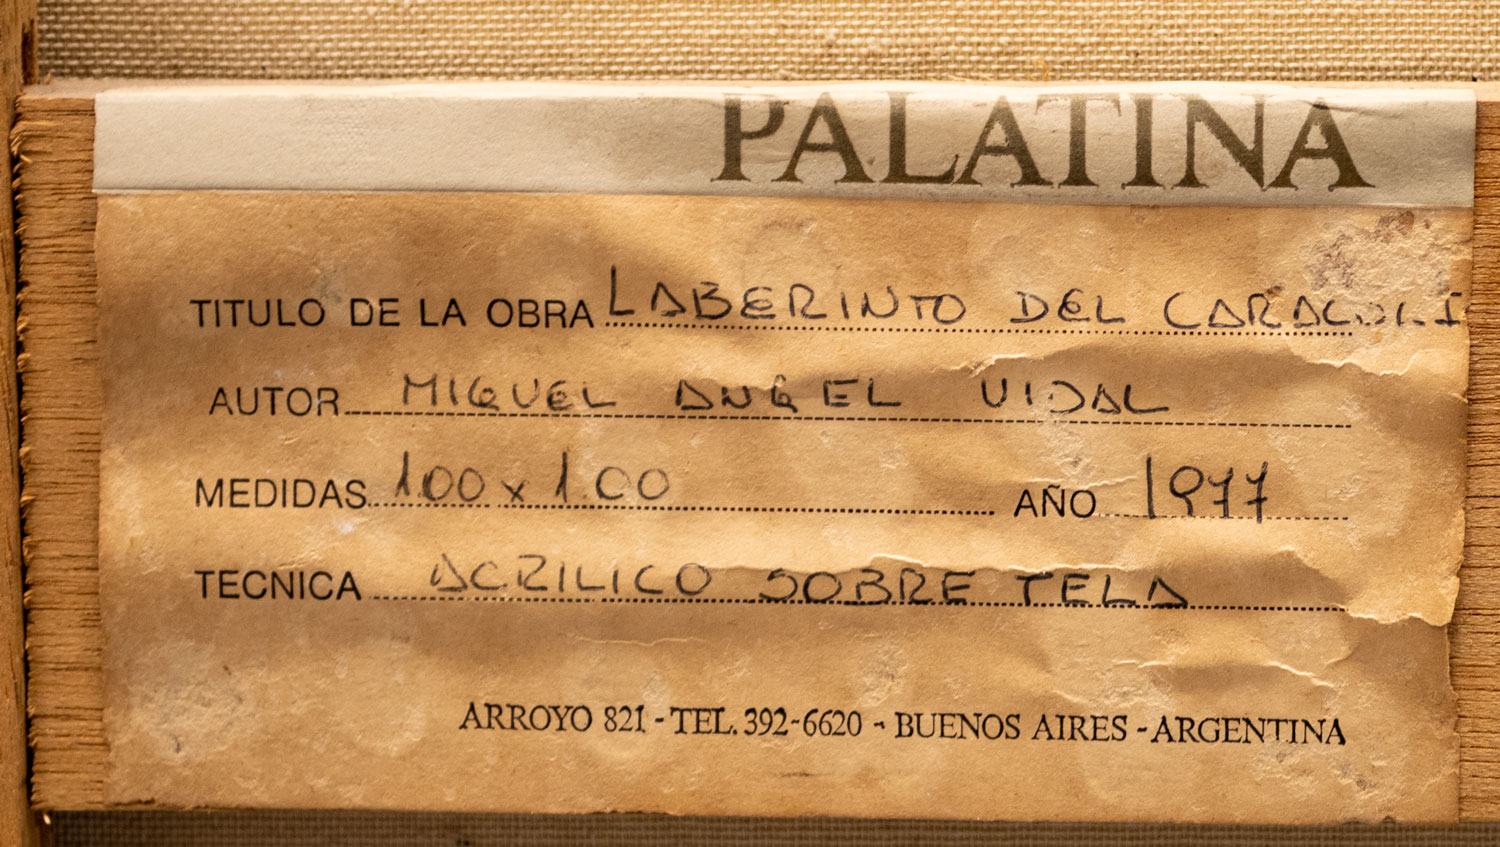 PALATINA
TITULO DE LA OBRA LABERINTO DEL
AUTOR MIGUEL ANGEL VIDAL
MEDIDAS 1.00 x 1.00 AÑO 1977
TECNICA ACRILICO SOBRE TELA
ARROYO 821 - TEL. 392-6620 - BUENOS AIRES - ARGENTINA